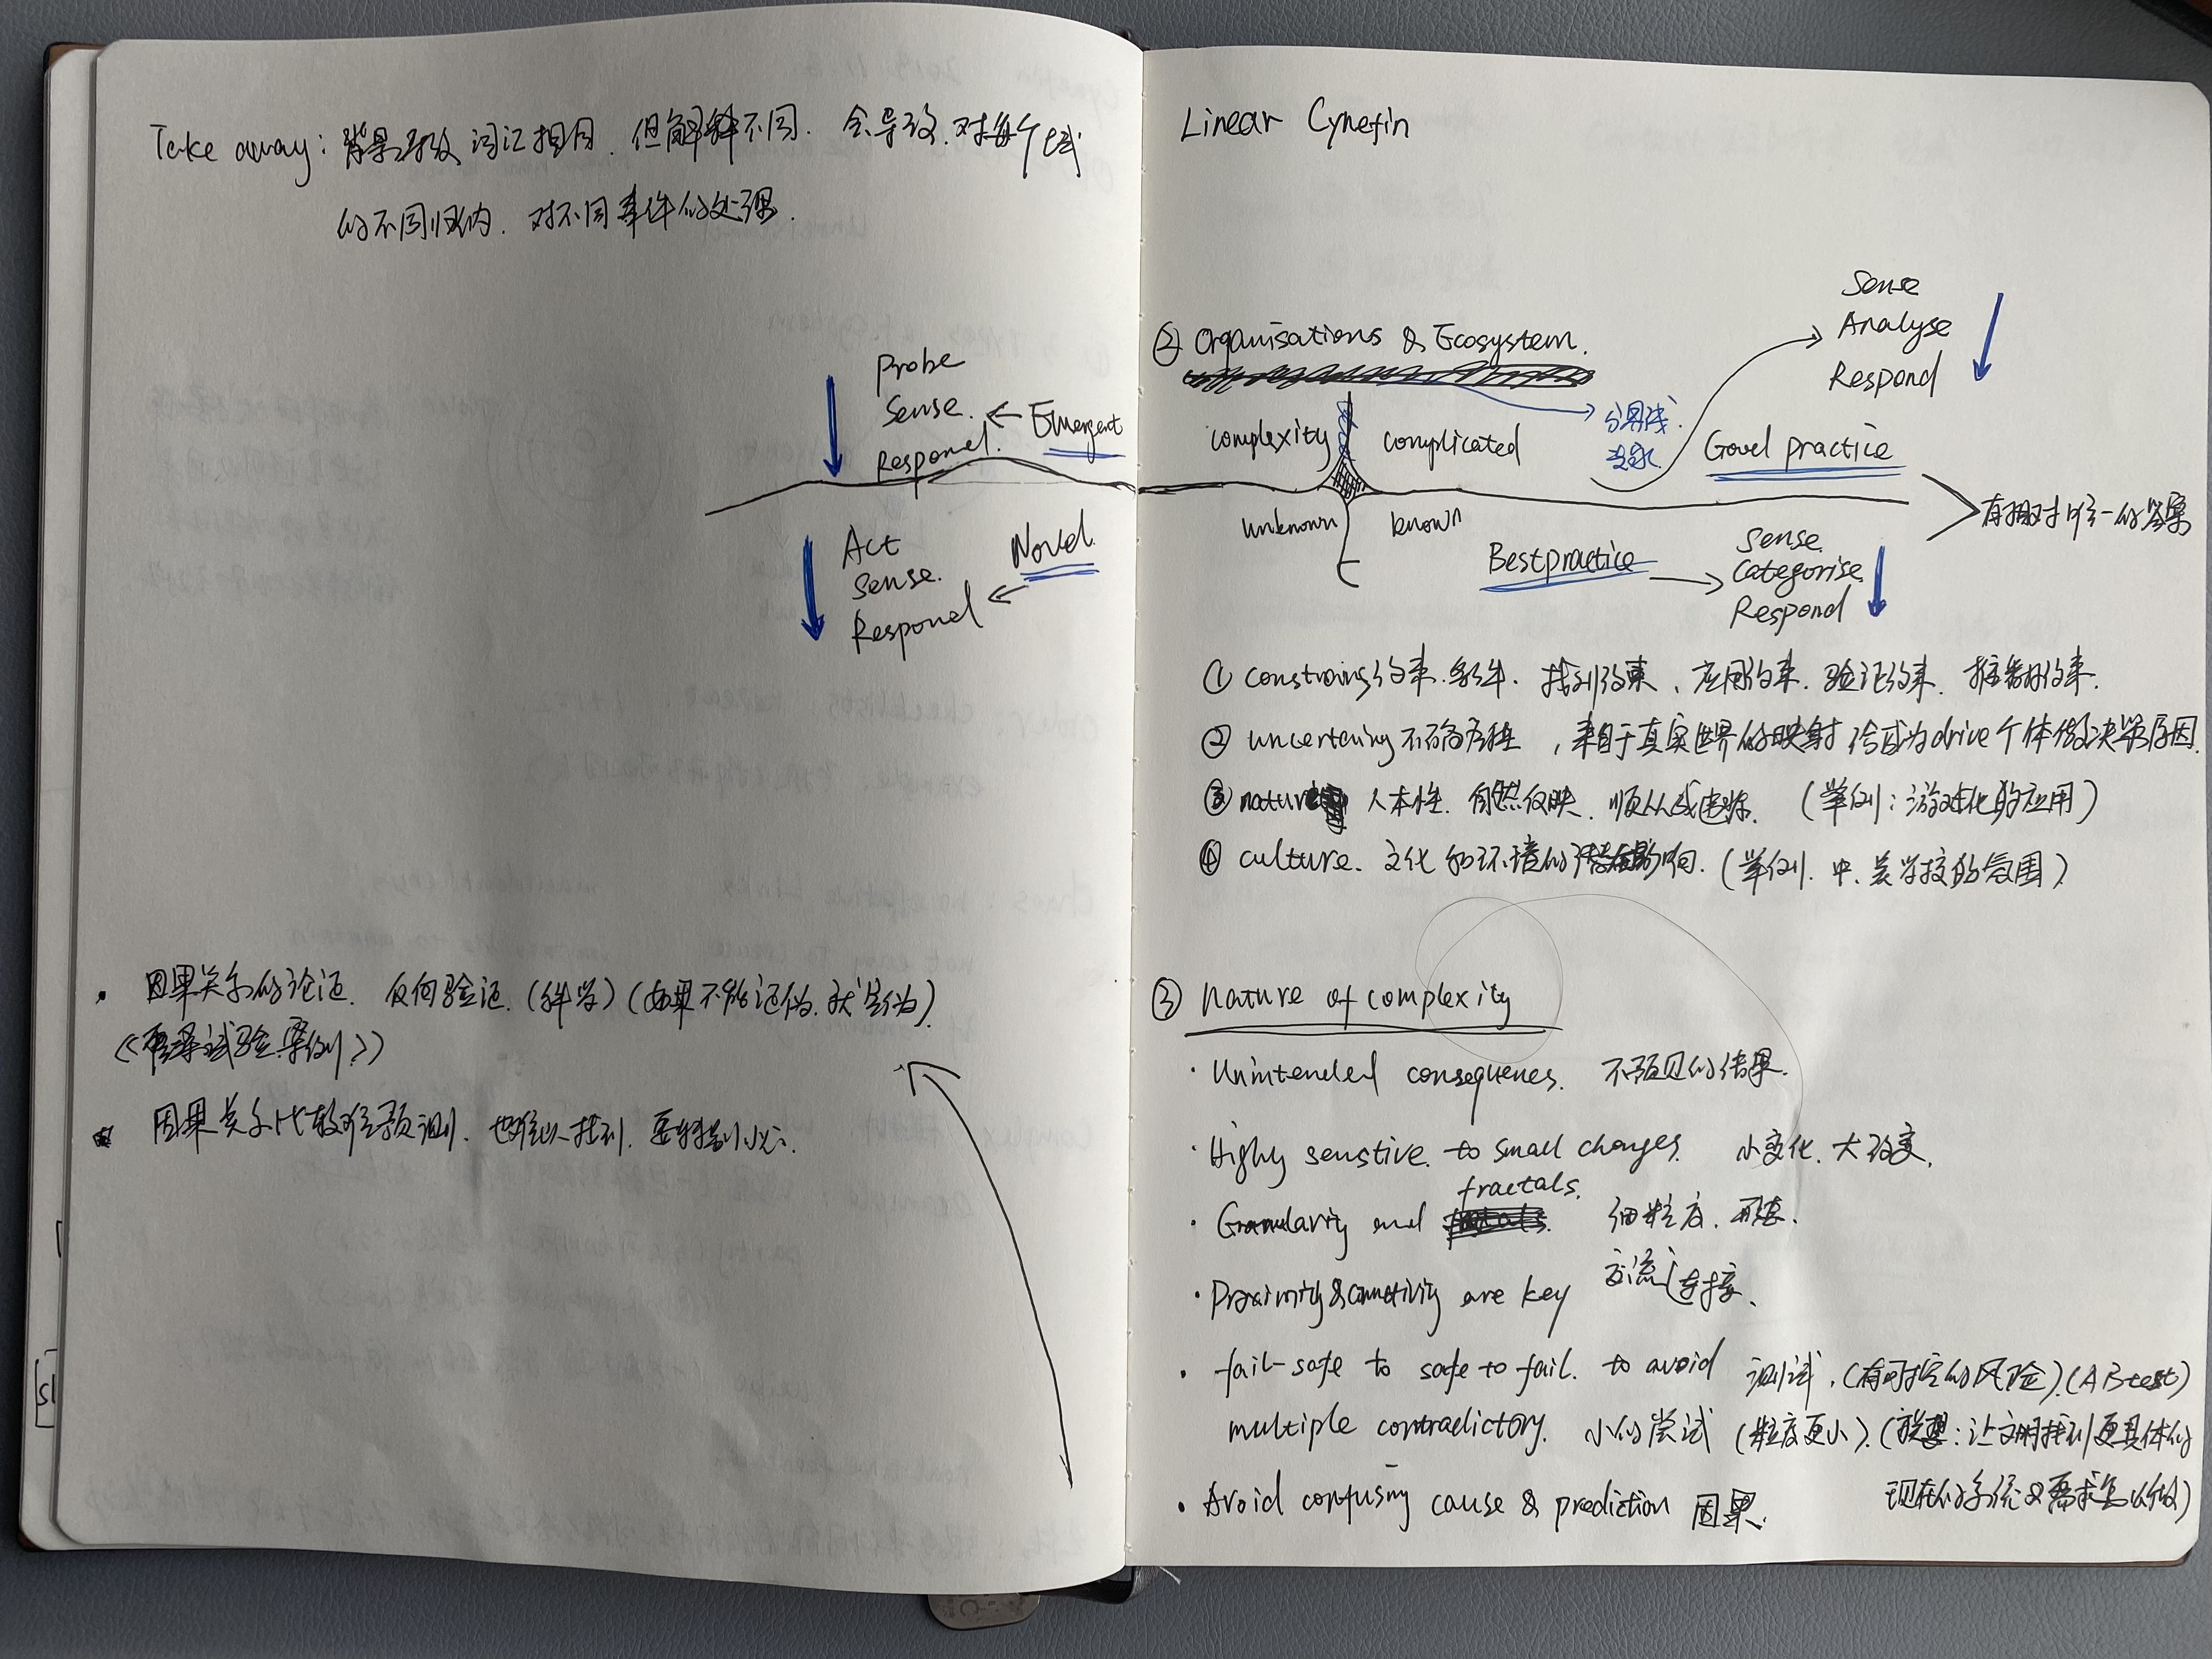 Take away: 背景导致 词汇相同. 但解释不同. 会导致. 对每个域
的不同归纳. 对不同事件的处理.
Probe
Sense. ← Emergent
Respond.
Act
Sense.
Respond ← Novel
· 因果关系的论证. 反向验证. (科学) (如果不能证伪. 就是伪)
试验案例
因果关系比较难预测. 也难以找到. 要特别小心.
Linear Cynefin
② Organisations & Ecosystem.
complexity
complicated
分界线.
unknown
known
Sense
Analyse
Respond
Good practice
有相对唯一的答案
Best practice →
Sense
Categorise
Respond
① constraings 约束. 条件. 找到约束、应用约束. 验证约束. 约束.
② uncertaing 不确定性 , 来自于真实世界的映射 给成为drive个体做决策原因.
③ nature 人本性. 自然反映. 顺从或 (举例: 游戏化的应用)
④ culture. 文化和环境的影响. (举例. 中、美学校的氛围)
③ Nature of complexity
· Unintended consequenes. 不预见的结果.
· Highy senstive. to small changes. 小变化. 大改变.
· Granularity and fractals. 细粒度.
· Proximity & connetivity are key 交流 连接.
· fail-safe to safe to fail. to avoid 测试. (有可控的风险). (AB test)
multiple contradictory. 小的尝试 (粒度更小). (联想: 让文明找到更具体的
现在的系统 需求怎么做)
· Avoid confusing cause & prediction 因果.